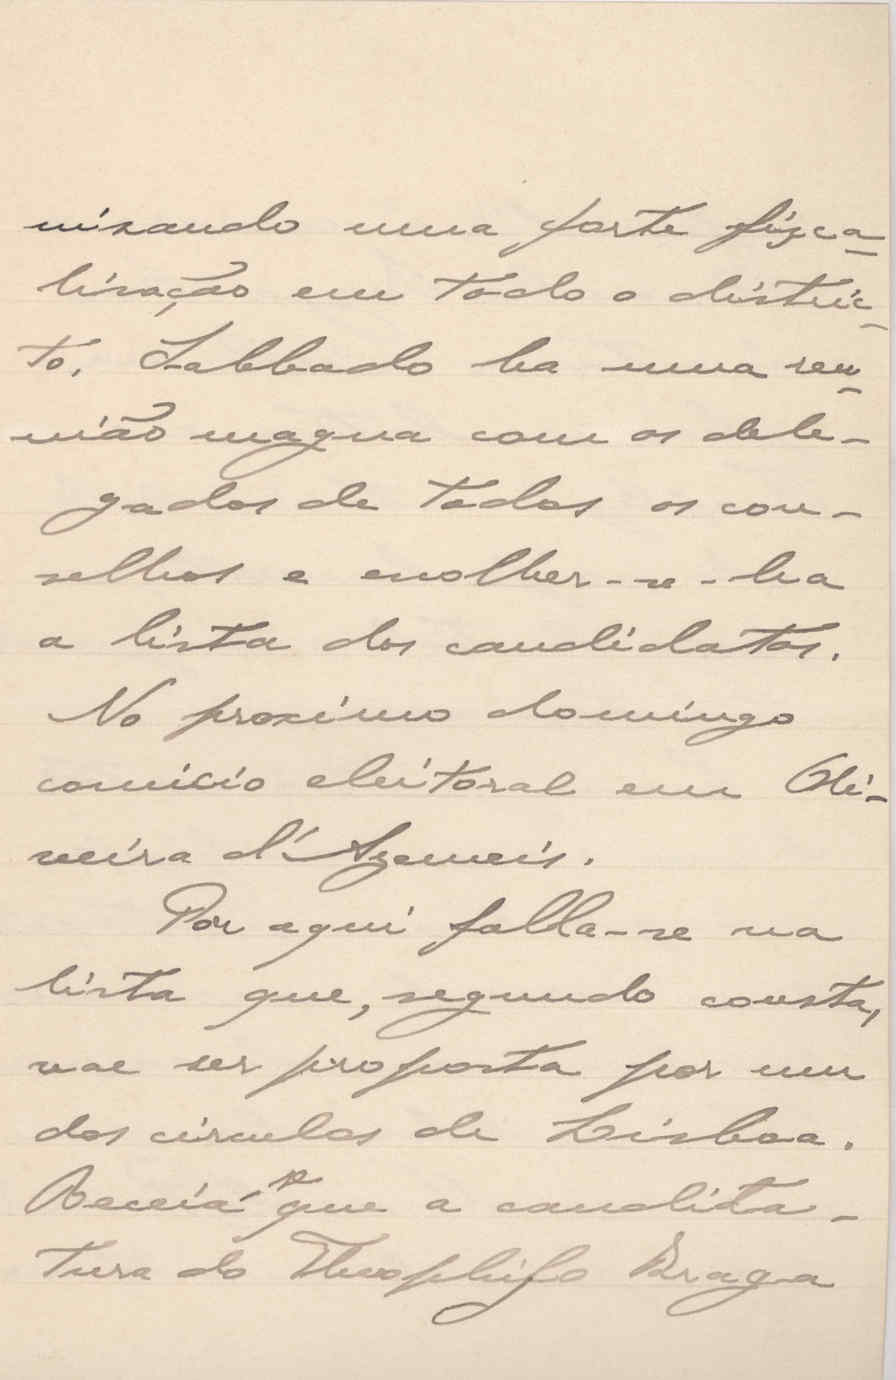 nisando uma forte fisca-
lisação em todo o distric-
to. Sabbado ha uma reu-
nião magna com os dele-
gados de todos os con-
selhos e escolher-se-ha
a lista dos candidatos.
No proximo domingo
comicio eleitoral em Oli-
veira d'Azemeis.
Por aqui falla-se na
lista que, segundo consta,
vae ser proposta por um
dos circulos de Lisboa.
Receia-se que a candida-
tura do Theophilo Braga